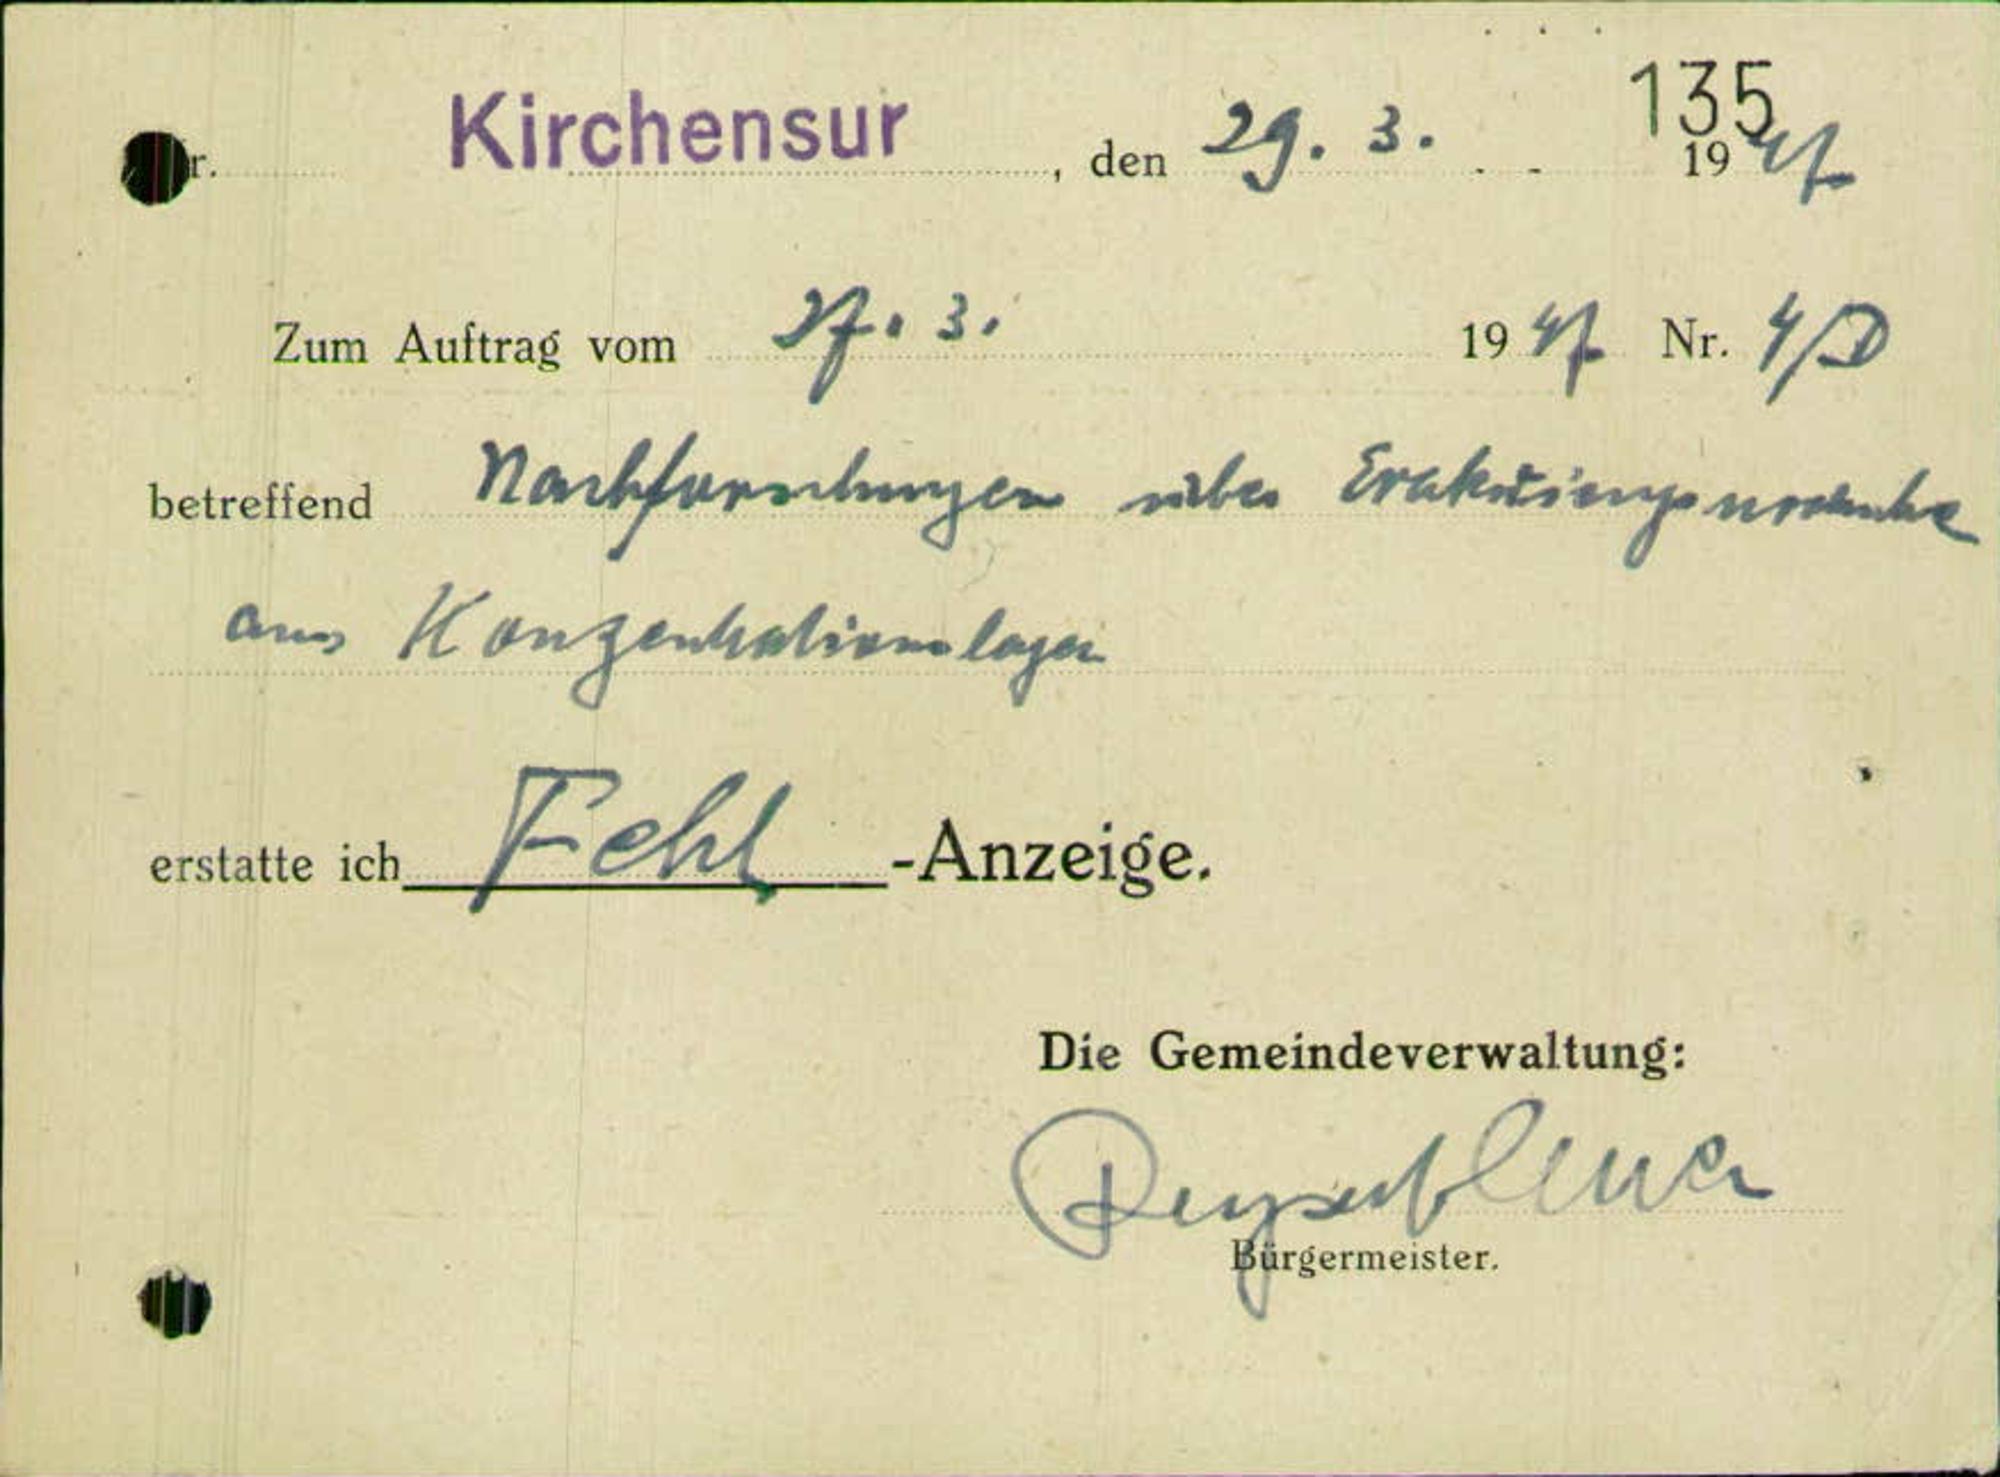 135
Nr. Kirchensur, den 29. 3. 1947
Zum Auftrag vom 27. 3. 1947 Nr. 4/D
betreffend Nachforschungen über
aus Konzentrationslager
erstatte ich Fehl -Anzeige.
Die Gemeindeverwaltung:
Bürgermeister.